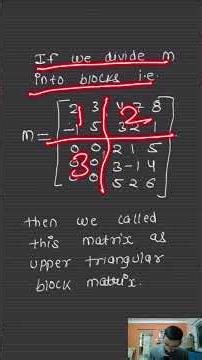 If we divide m
into blocks i.e.
2 3 4 7 8
-1 5 3 2 1
m =
0 0 2 1 5
0 0 3 -1 4
0 0 5 2 6
1 2
3
then we called
this matrix as
upper triangular
block matrix.